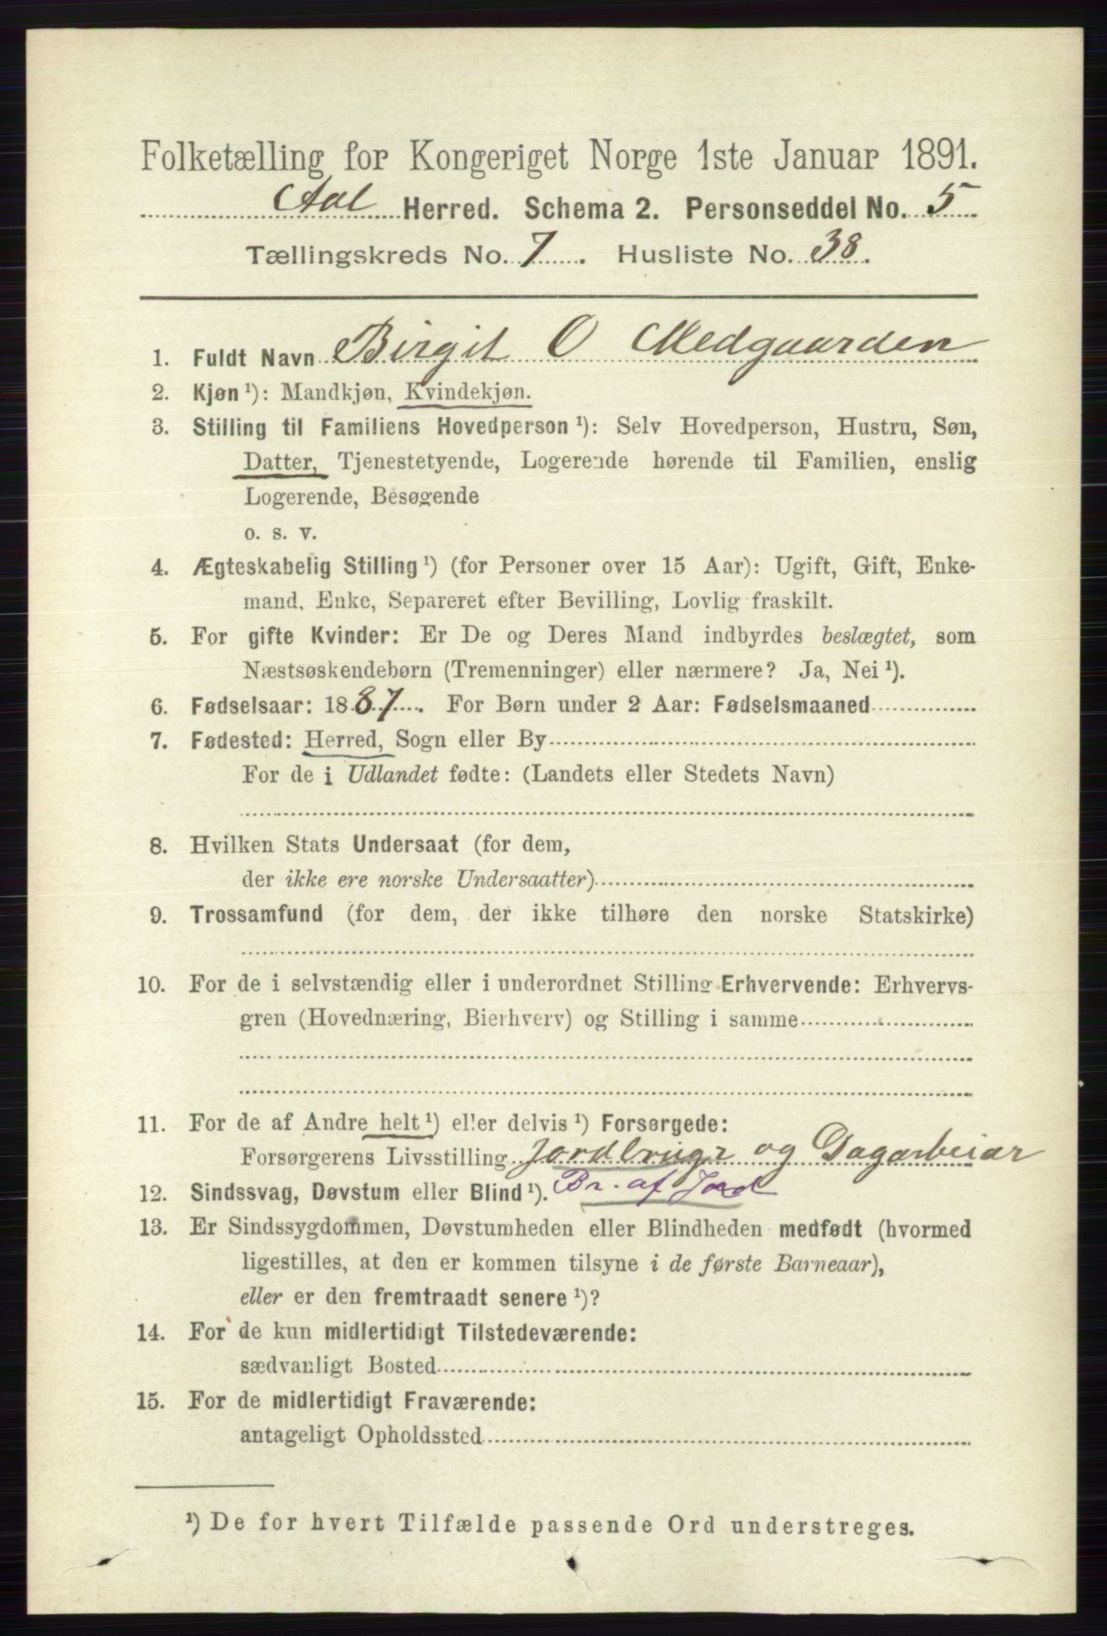 Folketælling for Kongeriget Norge 1ste Januar 1891.
Aal Herred. Schema 2. Personseddel No. 5
Tællingskreds No. 7. Husliste No. 38.
1. Fuldt Navn Birgit O Medgaarden
2. Kjøn ¹): Mandkjøn, Kvindekjøn.
3. Stilling til Familiens Hovedperson ¹): Selv Hovedperson, Hustru, Søn,
Datter, Tjenestetyende, Logerende hørende til Familien, enslig
Logerende, Besøgende
o. s. v.
4. Ægteskabelig Stilling ¹) (for Personer over 15 Aar): Ugift, Gift, Enke-
mand, Enke, Separeret efter Bevilling, Lovlig fraskilt.
5. For gifte Kvinder: Er De og Deres Mand indbyrdes beslægtet, som
Næstsøskendebørn (Tremenninger) eller nærmere? Ja, Nei ¹).
6. Fødselsaar: 1887. For Børn under 2 Aar: Fødselsmaaned
7. Fødested: Herred, Sogn eller By
For de i Udlandet fødte: (Landets eller Stedets Navn)
8. Hvilken Stats Undersaat (for dem,
der ikke ere norske Undersaatter)
9. Trossamfund (for dem, der ikke tilhøre den norske Statskirke)
10. For de i selvstændig eller i underordnet Stilling Erhvervende: Erhvervs-
gren (Hovednæring, Bierhverv) og Stilling i samme
11. For de af Andre helt ¹) eller delvis ¹) Forsørgede:
Forsørgerens Livsstilling Jordbrugr og Dagarbeiar
12. Sindssvag, Døvstum eller Blind ¹). Br. af Jord
13. Er Sindssygdommen, Døvstumheden eller Blindheden medfødt (hvormed
ligestilles, at den er kommen tilsyne i de første Barneaar),
eller er den fremtraadt senere ¹)?
14. For de kun midlertidigt Tilstedeværende:
sædvanligt Bosted
15. For de midlertidigt Fraværende:
antageligt Opholdssted
¹) De for hvert Tilfælde passende Ord understreges.